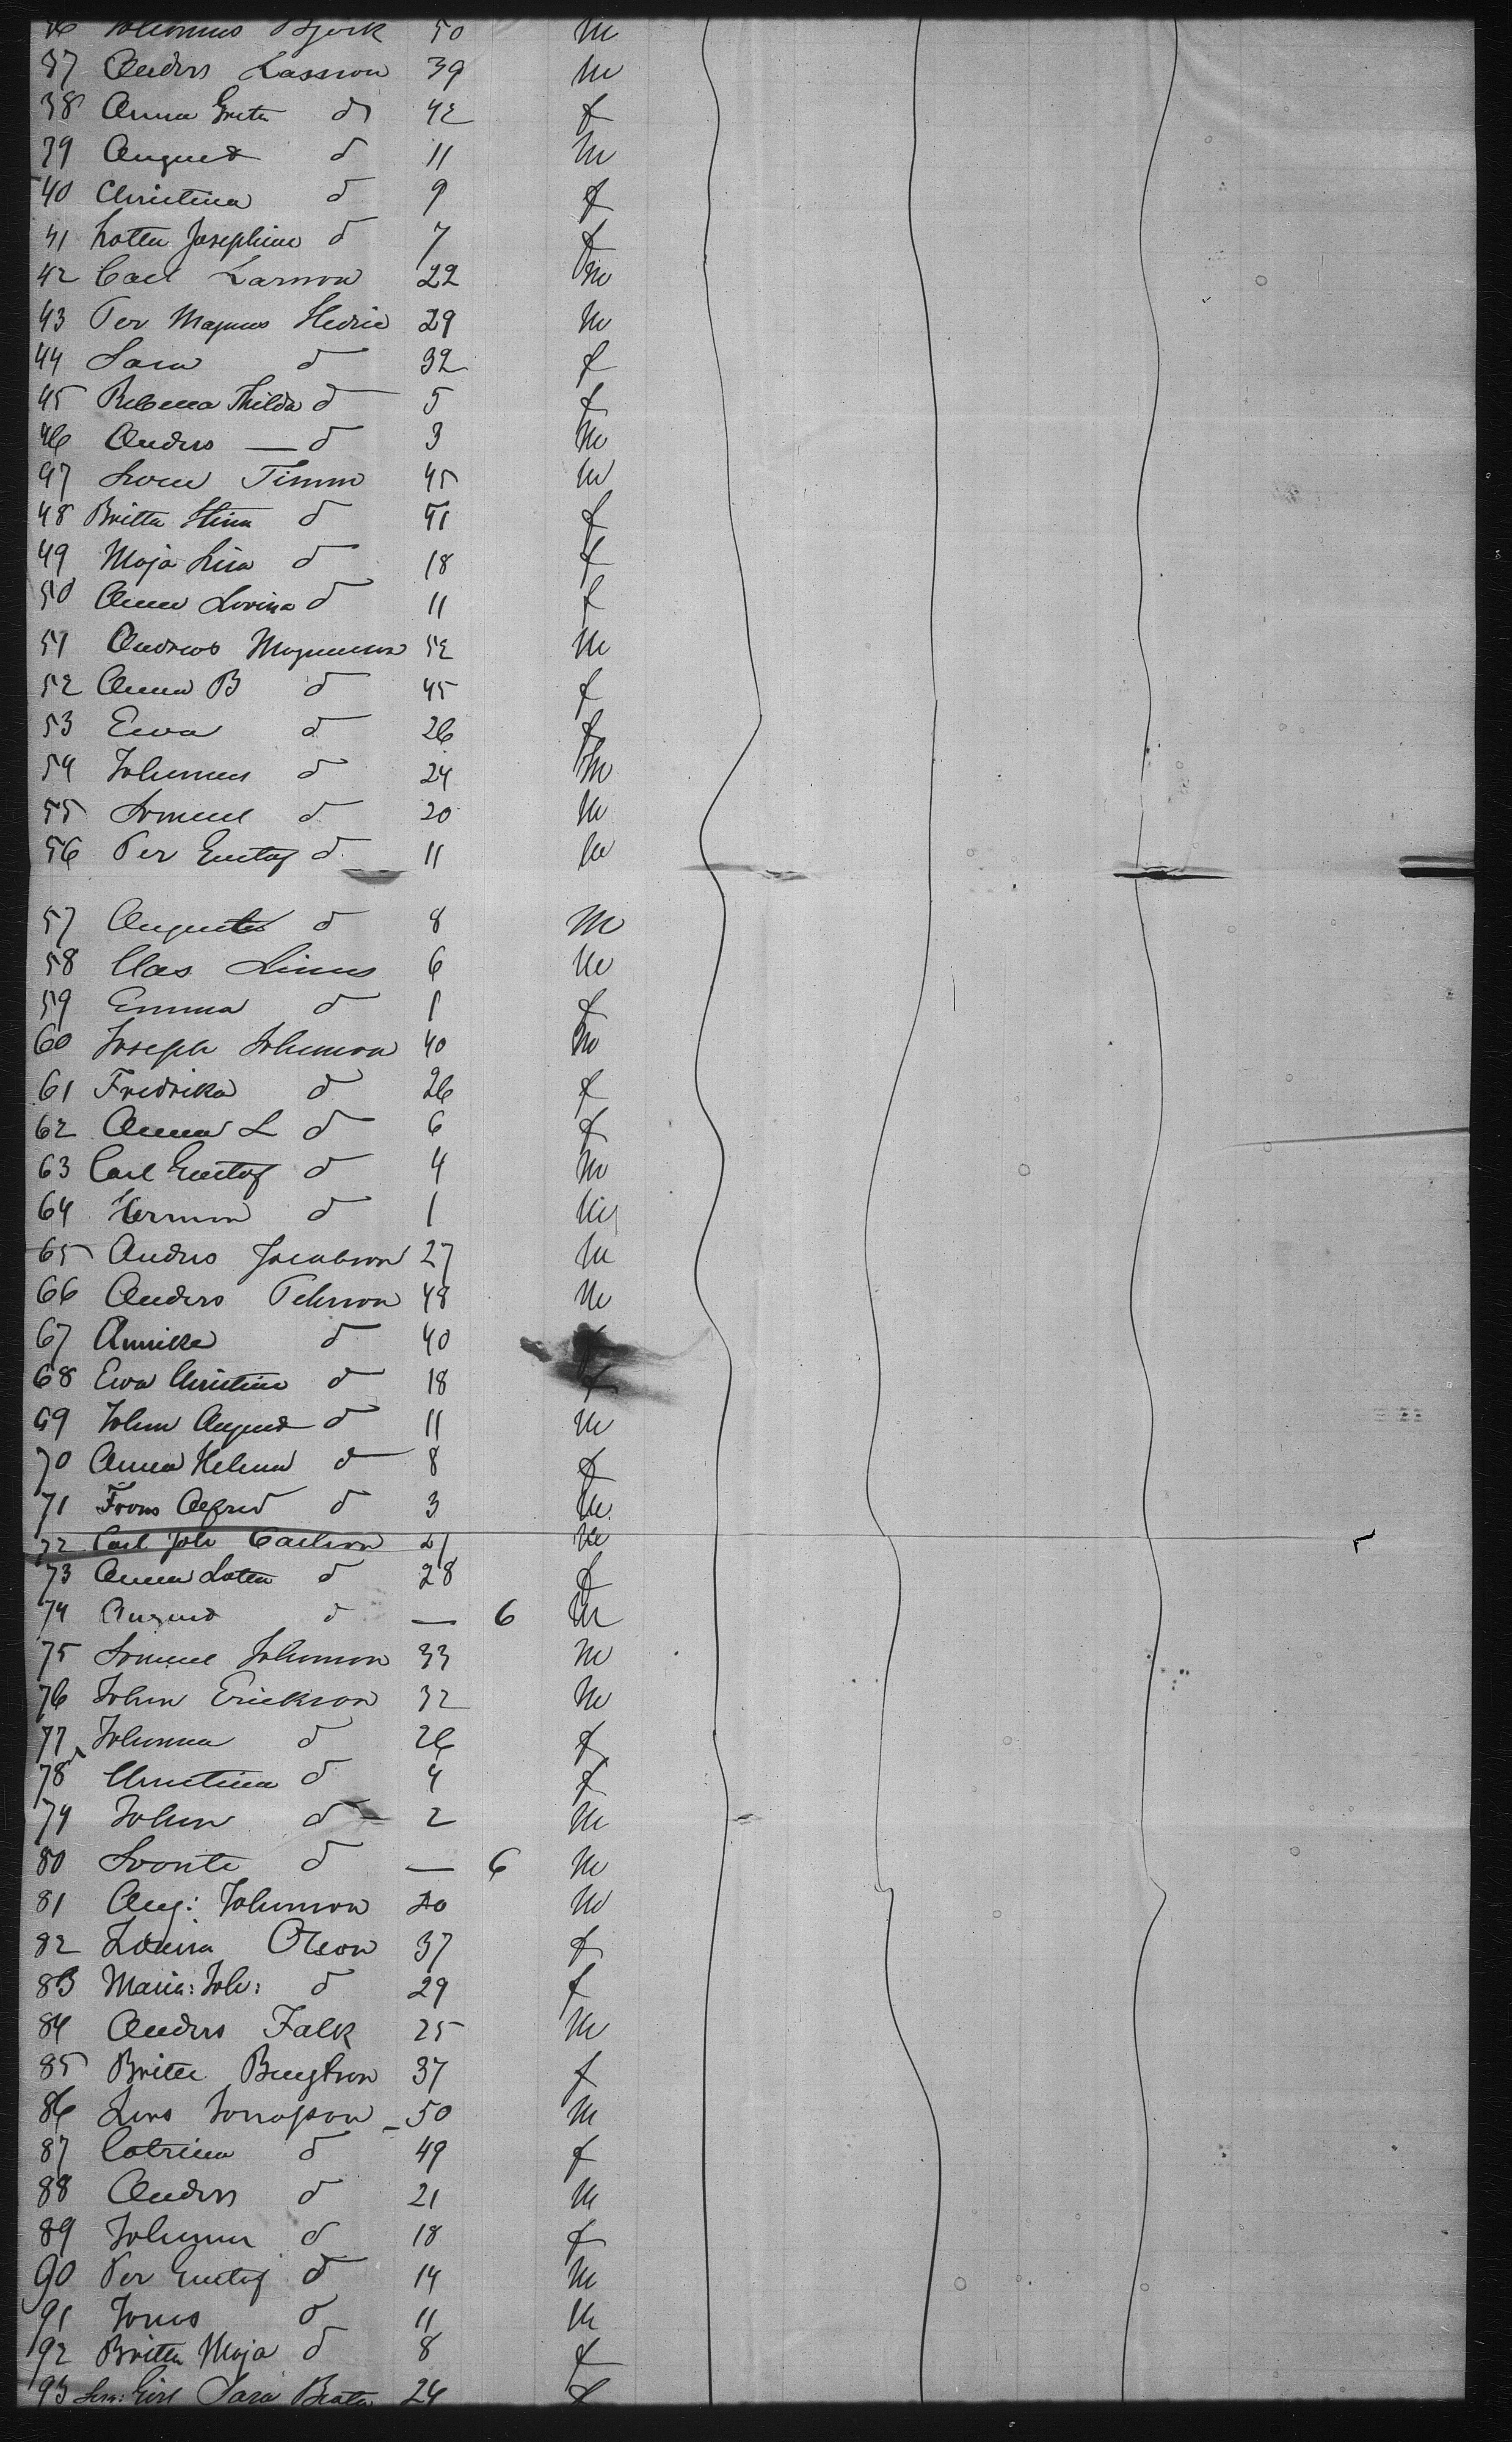 36 Johannes Bjork 50 m
37 Anders Lasson 39 m
38 Anna Greta do 42 f
39 August do 11 m
40 Christina do 9 f
41 Lotta Josephine do 7 f
42 Carl Larsson 22 m
43 Per Magnus 29 m
44 Sara do 32 f
45 Rebecca Thilda do 5 f
46 Anders — do 3 m
47 Timm 45 m
48 Britta Stina do 41 f
49 Maja Lisa do 18 f
50 Anna Lovina do 11 f
51 Andreas Magnusson 52 m
52 Anna B do 45 f
53 Ewa do 26 f
54 Johannes do 24 m
55 Samuel do 20 m
56 Per Gustaf do 11 m
57 do 8 m
58 Clas Linus 6 m
59 Emma do 1 f
60 Joseph Johansson 40 m
61 Fredrika do 26 f
62 Anna L do 6 f
63 Carl Gustaf do 4 m
64 Herman do 1 m
65 Andrs Jacobson 27 m
66 Anders Pehrson 48 m
67 Annika do 40 f
68 Ewa Christina do 18 f
69 John August do 11 m
70 Anna Helena do 8 f
71 Frans Alfred do 3 m
72 Carl Joh Carlson 21 m
73 Anna Lotta do 28 f
74 August do — 6 m
75 Samuel Johanson 33 m
76 John Erickson 32 m
77 Johanna do 26 f
78 Christina do 4 f
79 John do 2 m
80 Svante do — 6 m
81 Aug: Johanson 20 m
82 Lovisa Olson 37 f
83 Maria: Joh: do 29 f
84 Anders Falk 25 m
85 Britta Bengtson 37 f
86 Lars Jonasson 50 m
87 Catrina do 49 f
88 Anders do 21 m
89 Johanna do 18 f
90 Per Gustaf do 14 m
91 Jonas do 11 m
92 Britta Maja do 8 f
93 Girl Sara Beata 24 f